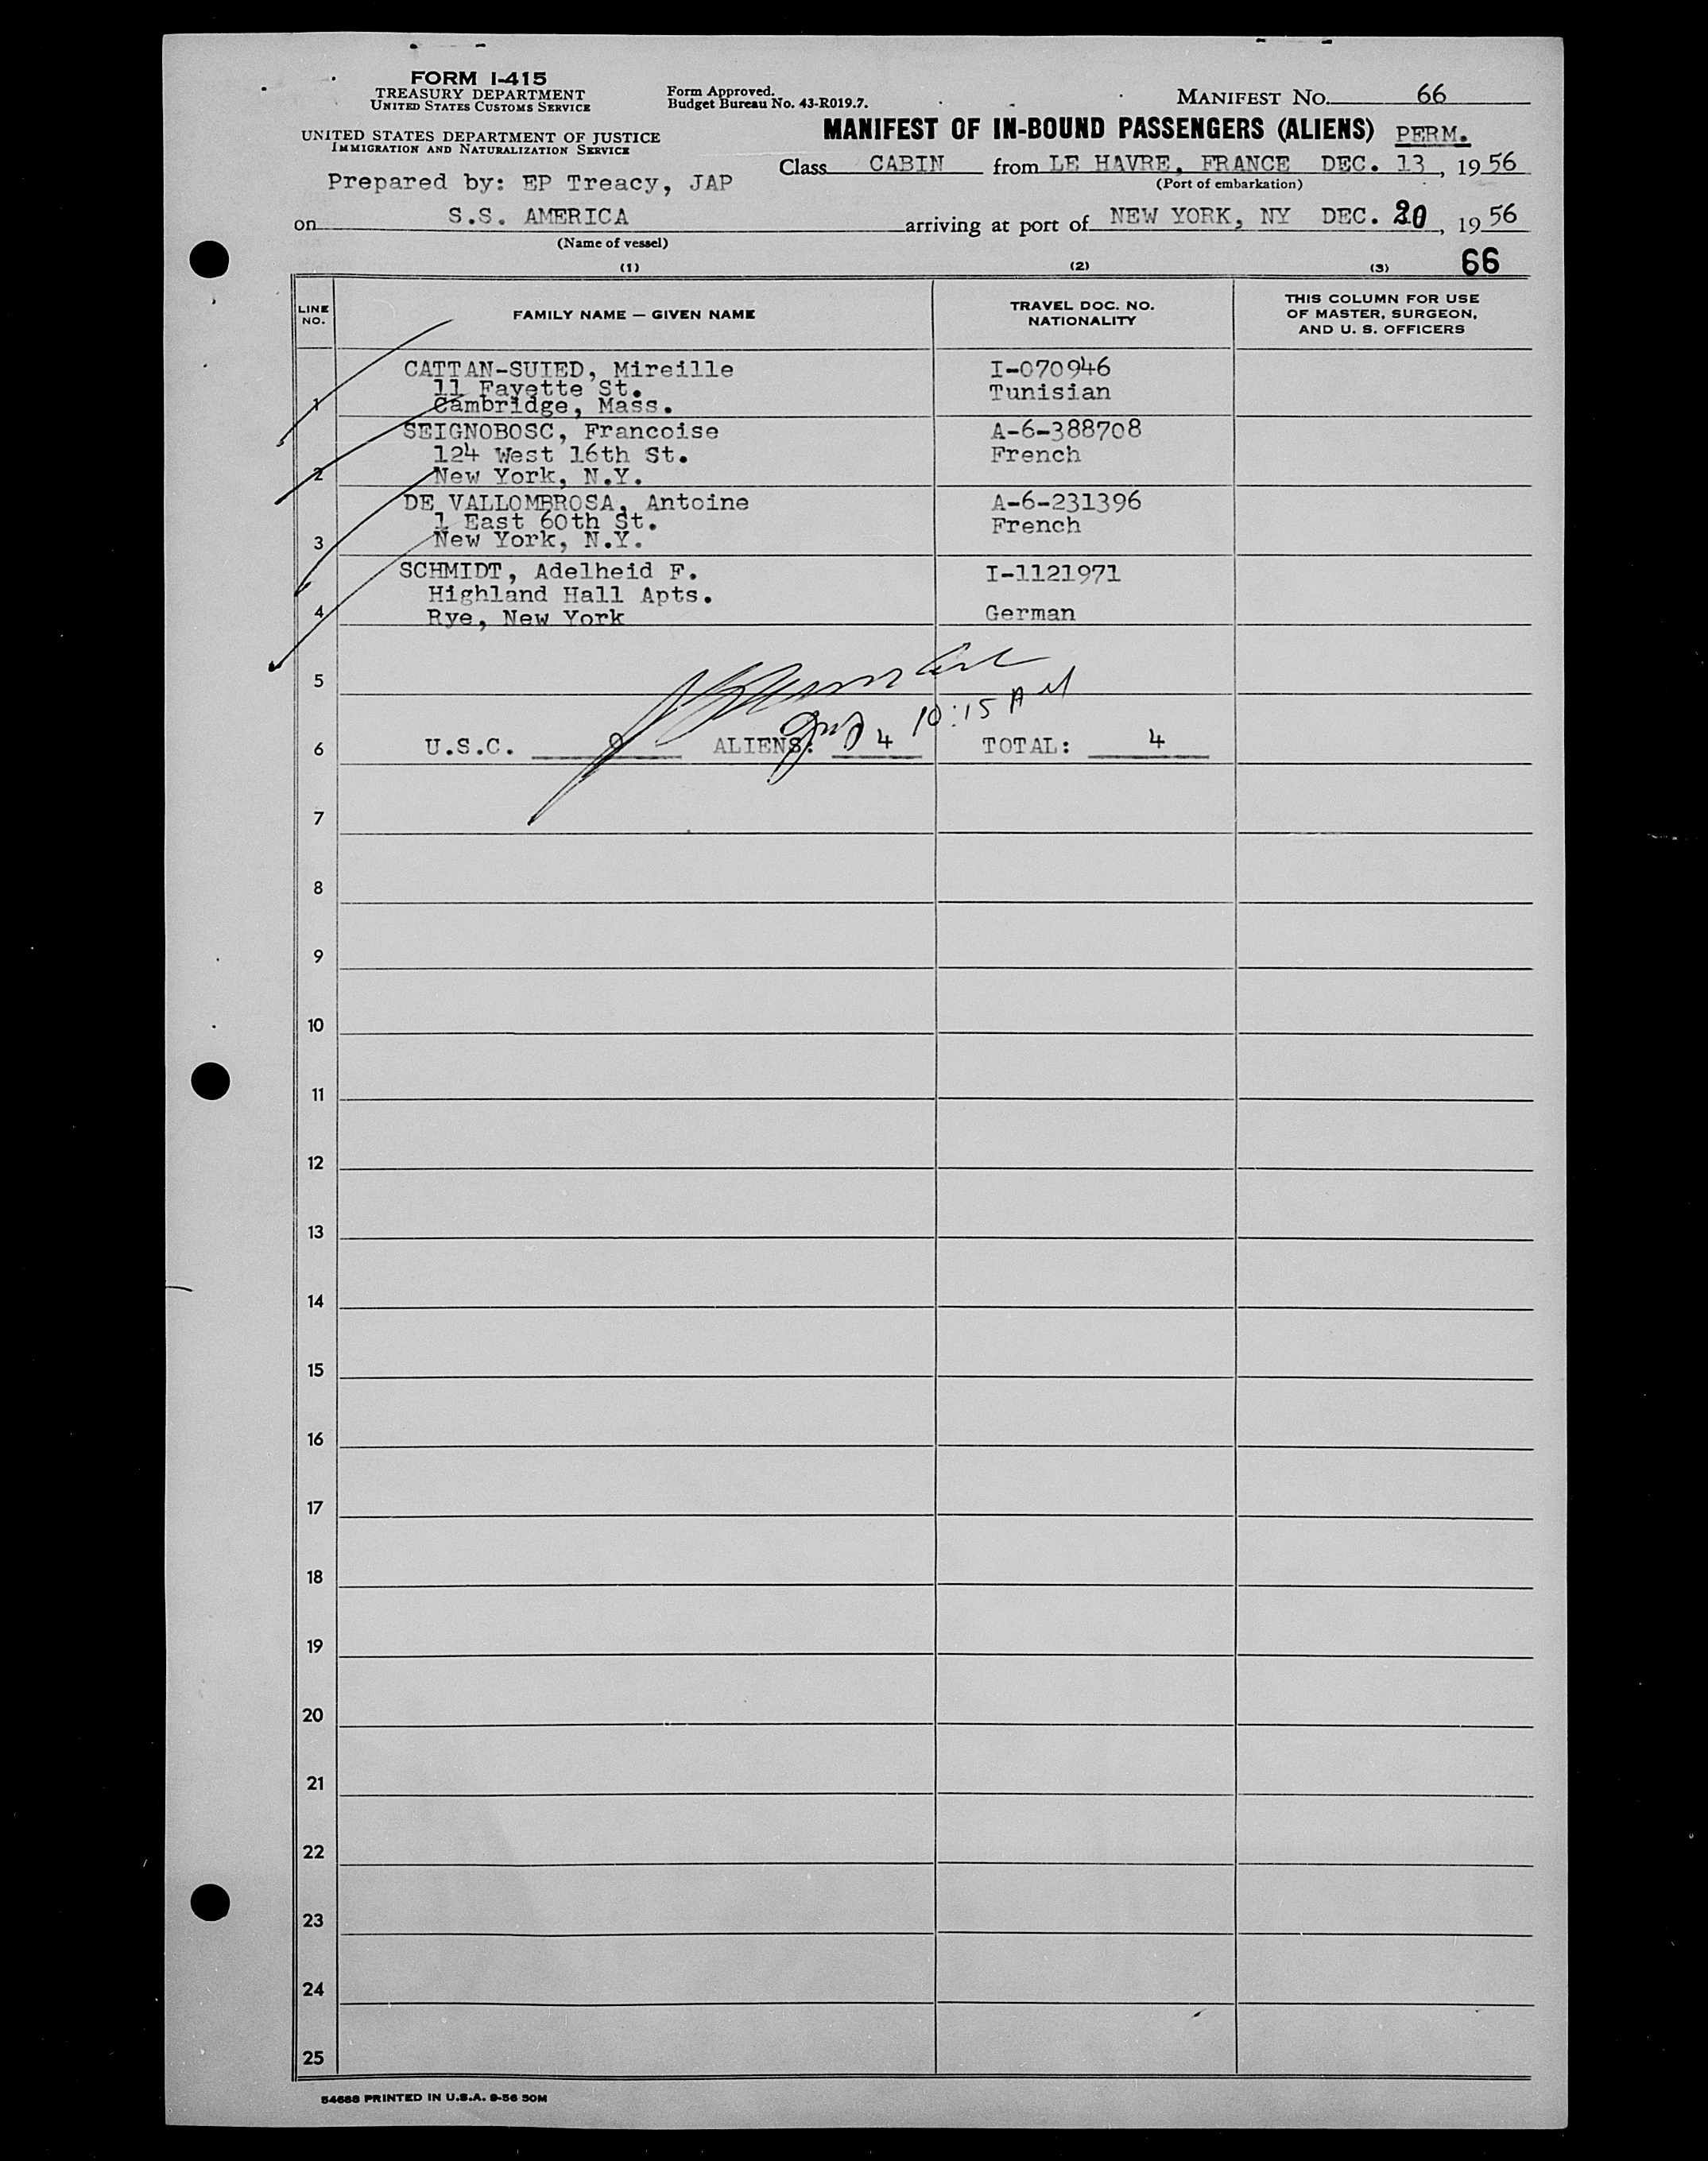 FORM I-415
TREASURY DEPARTMENT
UNITED STATES CUSTOMS SERVICE
Form Approved.
Budget Bureau No. 43-R019.7.
MANIFEST NO. 66
UNITED STATES DEPARTMENT OF JUSTICE
IMMIGRATION AND NATURALIZATION SERVICE
MANIFEST OF IN-BOUND PASSENGERS (ALIENS) PERM.
Class CABIN from LE HAVRE, FRANCE DEC. 13, 1956
(Port of embarkation)
Prepared by: EP Treacy, JAP
on S.S. AMERICA arriving at port of NEW YORK, NY DEC. 20, 1956
(Name of vessel)
66
(1) (2) (3)
LINE NO. FAMILY NAME — GIVEN NAME TRAVEL DOC. NO. NATIONALITY THIS COLUMN FOR USE OF MASTER, SURGEON, AND U. S. OFFICERS
CATTAN-SUIED, Mireille I-070946
11 Fayette St. Tunisian
1 Cambridge, Mass.
SEIGNOBOSC, Francoise A-6-388708
124 West 16th St. French
2 New York, N.Y.
DE VALLOMBROSA, Antoine A-6-231396
1 East 60th St. French
3 New York, N.Y.
SCHMIDT, Adelheid F. I-1121971
Highland Hall Apts.
4 Rye, New York German
5
10:15 AM
6 U.S.C. 0 ALIENS: 4 TOTAL: 4
7
8
9
10
11
12
13
14
15
16
17
18
19
20
21
22
23
24
25
54688 PRINTED IN U.S.A. 9-56 50M